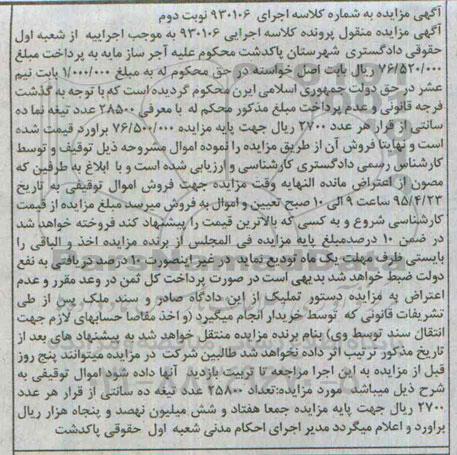 آگهی مزایده به شماره کلاسه اجرای ۹۳۰۱۰۶ نوبت دوم
آگهی مزایده منقول پرونده کلاسه اجرایی ۹۳۰۱۰۶ به موجب اجراییه از شعبه اول
حقوقی دادگستری شهرستان پاکدشت محکوم علیه آجر ساز مایه به پرداخت مبلغ
۷۶/۵۲۰/۰۰۰ ریال بابت اصل خواسته در حق محکوم له به مبلغ ۱/۰۰۰/۰۰۰ بابت نیم
عشر در حق دولت جمهوری اسلامی ایرن محکوم گردیده است که با توجه به گذشت
فرجه قانونی و عدم پرداخت مبلغ مذکور محکم له با معرفی ۲۸۵۰۰ عدد تیغه نما ده
سانتی از قرار هر عدد ۲۷۰۰ ریال جهت پایه مزایده ۷۶/۵۰۰/۰۰۰ براورد قیمت شده
است و نهایتا فروش آن از طریق مزایده را نموده اموال مشروحه ذیل توقیف و توسط
کارشناس رسمی دادگستری کارشناسی و ارزیابی شده است و با ابلاغ به طرفین که
مصون از اعتراض مانده النهایه وقت مزایده جهت فروش اموال توقیفی به تاریخ
۹۵/۴/۲۳ ساعت ۹ الی ۱۰ صبح تعیین و اموال به فروش میرسد مبلغ مزایده از قیمت
کارشناسی شروع و به کسی که بالاترین قیمت را پیشنهاد کند فروخته خواهد شد
در ضمن ۱۰ درصدمبلغ پایه مزایده فی المجلس از برنده مزایده اخذ و الباقی را
بایستی ظرف مهلت یک ماه تودیع نماید در غیر اینصورت ۱۰ درصد دریافتی به نفع
دولت ضبط خواهد شد بدیهی است در صورت پرداخت کل ثمن در وعد مقرر و عدم
اعتراض به مزایده دستور تملیک از این دادگاه صادر و سند ملک پس از طی
تشریفات قانونی که توسط خریدار انجام میگیرد (و اخذ مفاصا حسابهای لازم جهت
انتقال سند توسط وی) بنام برنده مزایده منتقل خواهد شد به پیشنهاد های بعد از
تاریخ مذکور ترتیب اثر داده نخواهد شد طالبین شرکت در مزایده میتوانند پنج روز
قبل از مزایده به این اجرا مراجعه تا تربیت بازدید آنها داده شود اموال توقیفی به
شرح ذیل میباشد مورد مزایده:تعداد ۲۵۸۰۰ عدد تیغه ده سانتی از قرار هر عدد
۲۷۰۰ ریال جهت پایه مزایده جمعا هفتاد و شش میلیون نهصد و پنجاه هزار ریال
براورد و اعلام میگردد مدیر اجرای احکام مدنی شعبه اول حقوقی پاکدشت